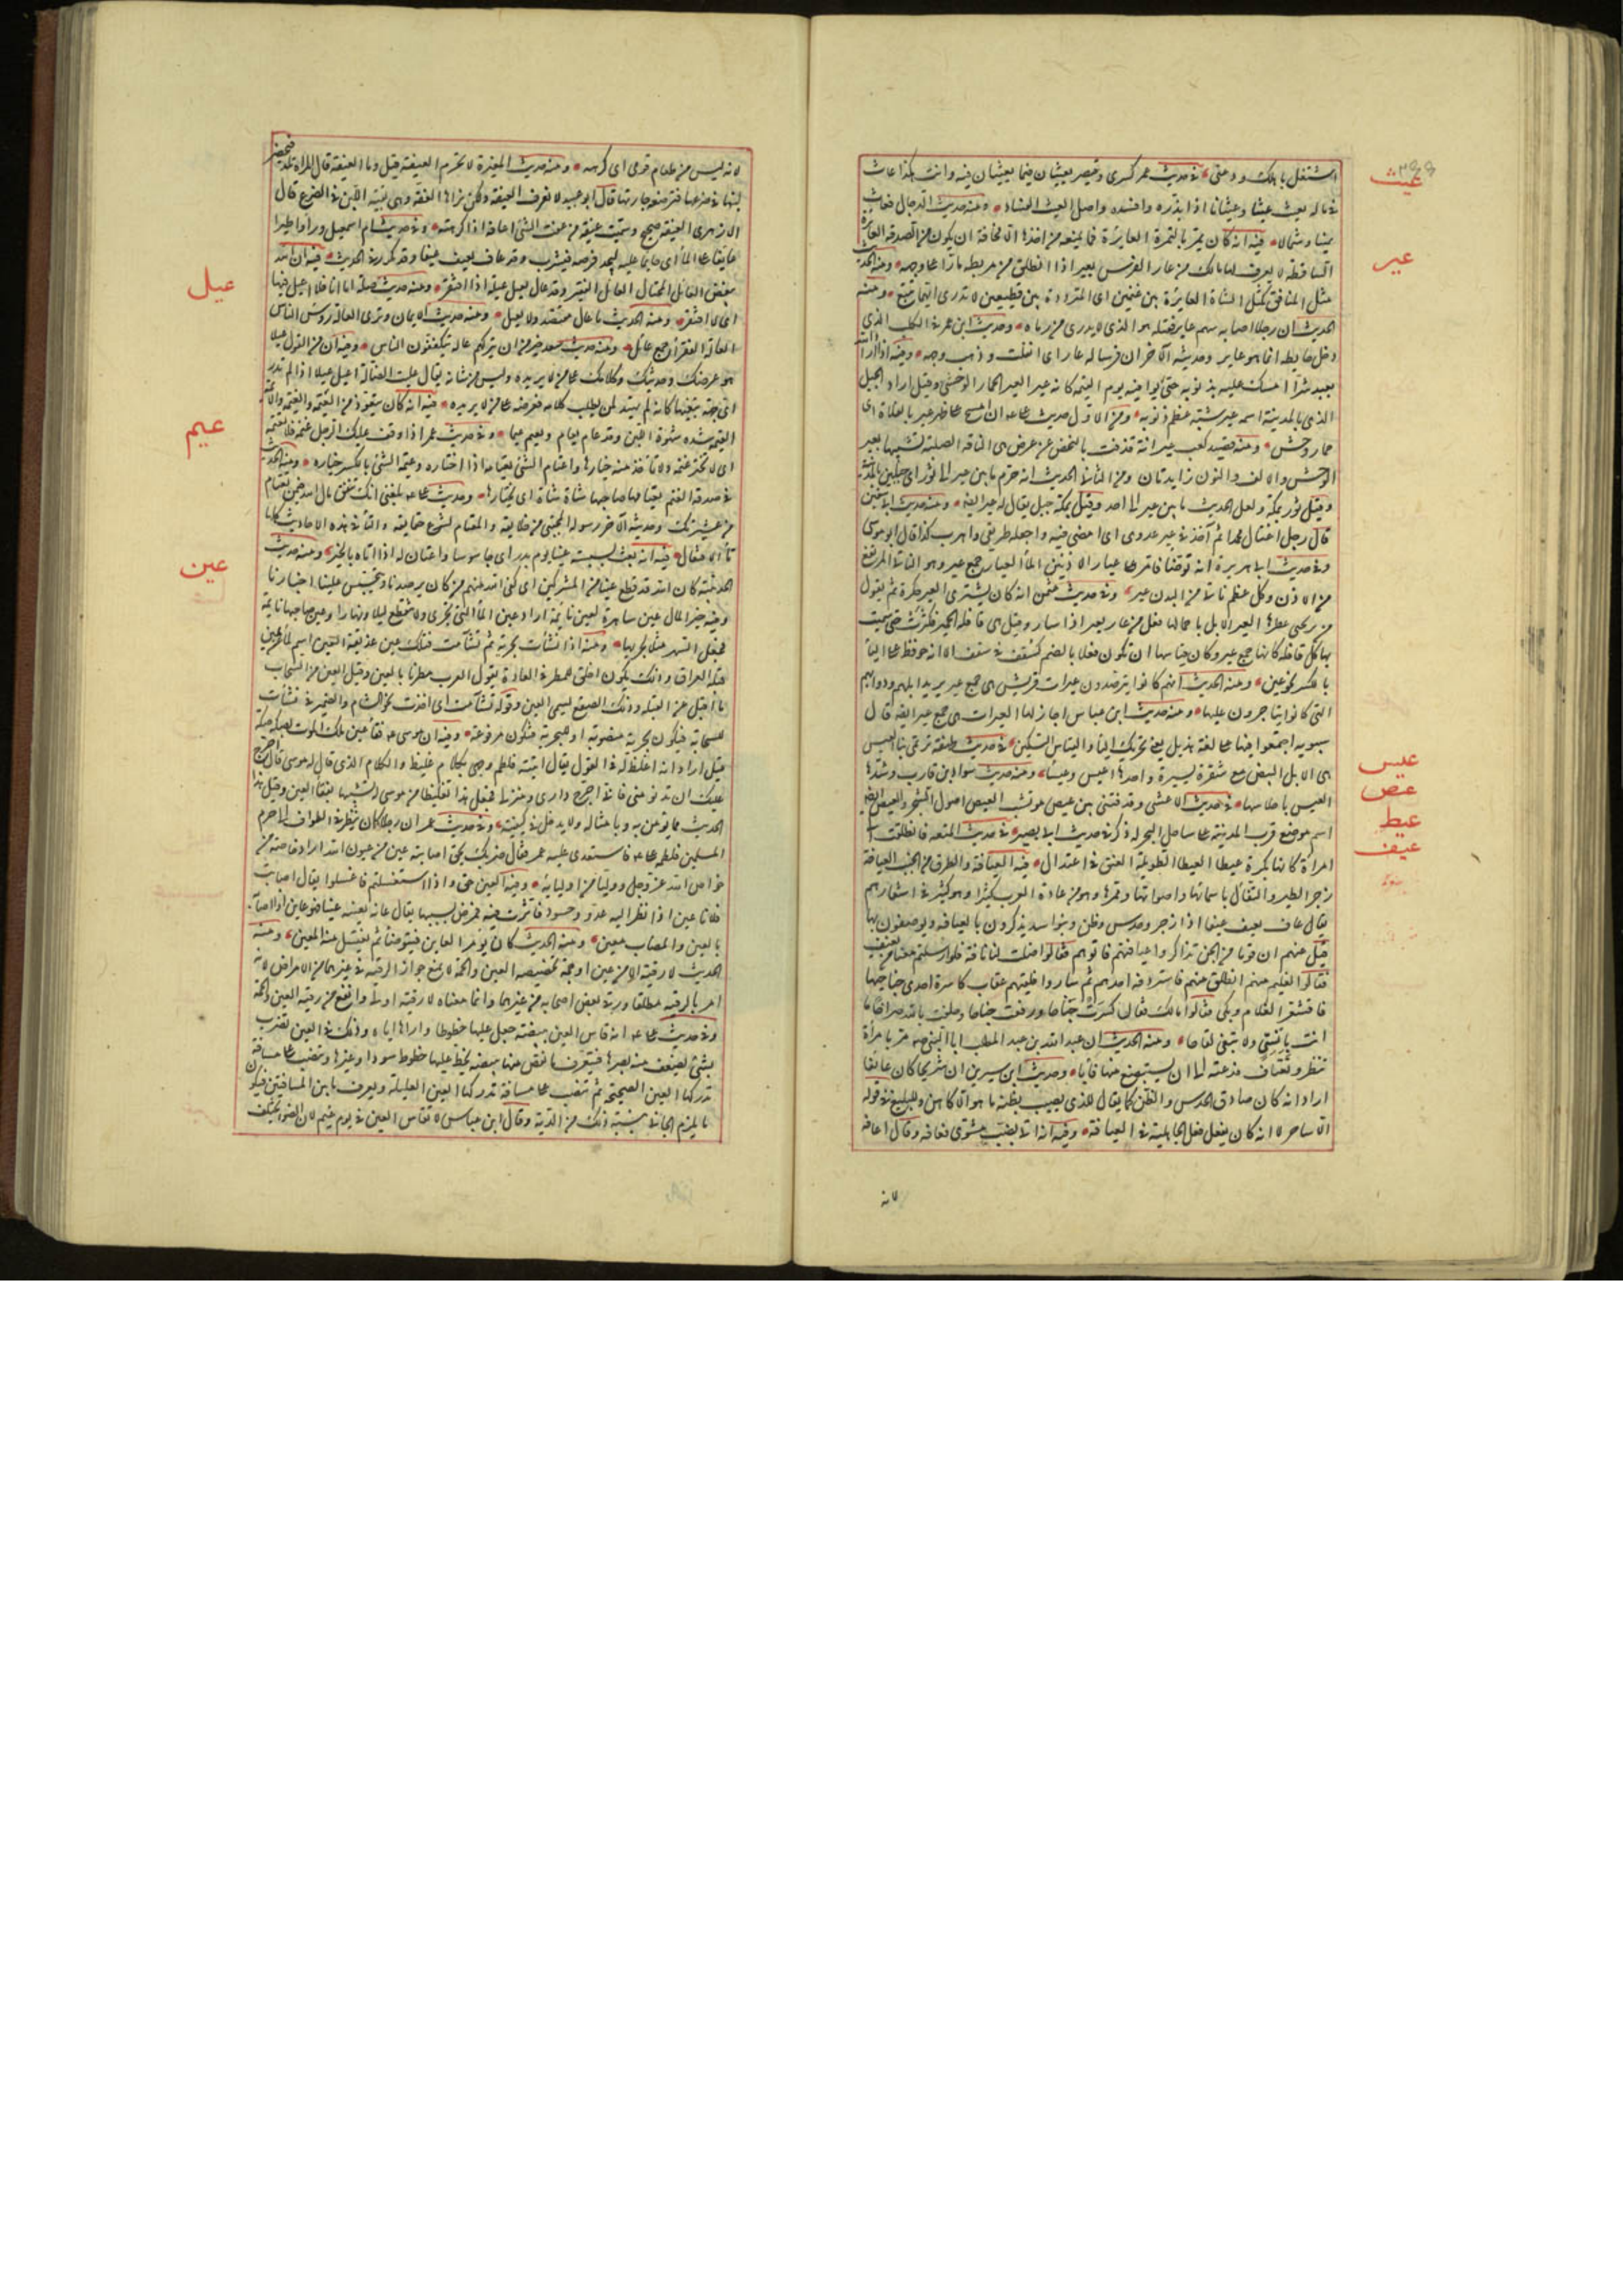 عيث
استغل بالك ودعنى في حديث عمر كسرى وقيصر يعيثان فيما يعيثان فيه وانت هكذا عاث
في ماله يعيث عيثا وعيثانا اذا بذره وافسده واصل العيث الفساد ومنه حديث الدجال فعاث
عير
يمينا وشمالا فيه انه كان يمر بالتمرة العايرة فما يمنعه من اخذها الا مخافة ان يكون من الصدقة العايرة
الساقطة لا يعرف لها مالك من عار الفرس يعير اذا انطلق من مربطه مارا على وجهه ومنه الحديث
مثل المنافق كمثل الشاة العايرة بين غنمين اى المترددة بين قطيعين لا تدرى ايهما تتبع ومنه
الحديث ان رجلا اصابه سهم عاير فقتله هو الذى لا يدرى من رماه وحديث ابن عمر في الكلب الذى
دخل حايطه انما هو عاير وحديثه الآخر ان فرسا له عار اى افلت وذهب وجهه وفيه اذا اراد الله
بعبد شرا امسك عليه بذنوبه حتى يوافيه يوم القيمة كانه عير العير الحمار الوحشى وقيل اراد الجبل
الذى بالمدينة اسمه عير شبه عظم ذنوبه ومن الاول حديث على لان امسح على ظهر عير بالفلاة اى
حمار وحش ومنه قصيد كعب عيرانة قذفت بالنحض عن عرض هى الناقة الصلبة تشبيها بعير
الوحش والالف والنون زايدتان ومن الثانى الحديث انه حرم ما بين عير الى ثور اى جبلين بالمدينة
وقيل ثور بمكة ولعل الحديث ما بين عير الى احد وقيل بمكة جبل يقال له عير ايضا ومنه حديث ابى سفين
قال رجل اغتال محمدا ثم آخذ في عير عدوى اى امضى فيه واجعله طريقى واهرب كذا قال ابو موسى
وفي حديث ابى هريرة انه توضأ فامر على عيار الاذنين الماء العيار جمع عير وهو الناتئ المرتفع
من الاذن وكل عظم ناتئ من البدن عير وفي حديث عثمن انه كان يشترى العير حكرة ثم يقول
من يربحنى عقلها العير الابل باحمالها فعل من عار يعير اذا سار وقيل هى قافلة الحمير فكثرت حتى سميت
بها كل قافلة كانها جمع عير وكان قياسها ان تكون فعلا بالضم كسقف في سقف الا انه حوفظ على الياء
بالكسر نحو عين ومنه الحديث انهم كانوا يترصدون عيرات قريش هى جمع عير يريد ابلهم ودوابهم
التى كانوا يتاجرون عليها ومنه حديث ابن عباس اجاز لها العيرات هى جمع عير ايضا قال
عيس
سيبويه اجمعوا فيها على لغة هذيل يعنى تحريك الياء والقياس التسكين في حديث طهفة ترتمى بنا العيس
هى الابل البيض مع شقرة يسيرة واحدها اعيس وعيسا ومنه حديث سواد بن قارب وشدها
عيص
العيس باحلاسها في حديث الاعشى وقذفتنى بين عيص مؤتشب العيص اصول الشجر والعيص ايضا
عيط
اسم موضع قرب المدينة على ساحل البحر له ذكر في حديث ابى بصير في حديث المتعة فانطلقت الى
عيف
امرأة كانها بكرة عيطا العيطا الطويلة العنق في اعتدال فيه العيافة والطرق من الجبت العيافة
زجر الطير والتفاؤل باسمائها واصواتها وممرها وهو من عادة العرب كثيرا وهو كثير في اشعارهم
يقال عاف يعيف عيفا اذا زجر وحدس وظن وبنو اسد يذكرون بالعيافة ويوصفون بها
قيل عنهم ان قوما من الجن تذاكروا عيافتهم فاتوهم فقالوا ضلت لنا ناقة فلو ارسلتم معنا من يعيف
فقالوا لغليم منهم انطلق معهم فاستردفه احدهم ثم ساروا فلقيتهم عقاب كاسرة احدى جناحيها
فاقشعر الغلام وبكى فقالوا مالك فقال كسرت جناحا ورفعت جناحا وحلفت بالله صراحا ما
انت بانسى ولا تبغى لقاحا ومنه الحديث ان عبد الله بن عبد المطلب ابا النبى مر بامرأة
تنظر وتعتاف فدعته الى ان يستبضع منها فابى وحديث ابن سيرين ان شريحا كان عايفا
اراد انه كان صادق الحدس والظن كما يقال للذى يصيب بظنه ما هو الا كاهن وللبليغ في قوله
الا ساحر لا انه كان يفعل فعل الجاهلية في العيافة وفيه انه اتى بضب مشوى فعافه وقال اعافه
لانه
لانه ليس من طعام قومى اى كرهه ومنه حديث المغيرة لا تحرم العيفة قيل وما العيفة قال المرأة تلد فيحصر
لبنها في ضرعها فترضعه جارتها قال ابو عبيد لا نعرف العيفة ولكن نراها العفة وهى بقية اللبن في الضرع قال
الازهرى العيفة صحيح وسميت عيفة من عفت الشئ اعافه اذا كرهته وفي حديث ام اسمعيل ورأوا طيرا
عايفا على الماء اى حايما عليه ليجد فرصة فيشرب وقد عاف يعيف عيفا وقد تكرر في الحديث فيه ان الله
عيل
يبغض العائل المختال العائل الفقير وقد عال يعيل عيلة اذا افتقر ومنه حديث صلة اما انا فلا اعيل فيها
اى لا افتقر ومنه الحديث ما عال مقتصد ولا يعيل ومنه حديث الايمان وترى العالة رؤس الناس
العالة الفقرا جمع عائل ومنه حديث سعد خير من ان تتركهم عالة يتكففون الناس وفيه ان من القول عيلا
هو عرضك حديثك وكلامك على من لا يريده وليس من شانه يقال علت الضالة اعيل عيلا اذا لم تدر
عيم
اى جهة تبغيها كانه لم يهتد لمن يطلب كلامه فعرضه على من لا يريده فيه انه كان يتعوذ من العيمة والغيمة والايمة
العيمة شدة شهوة اللبن وقد عام يعام ويعيم عيما وفي حديث عمر اذا وقف عليك الرجل غنمه فلا تعتمه
اى لا تختر غنمه ولا تأخذ منه خيارها واعتام الشئ يعتامه اذا اختاره وعيمة الشئ بالكسر خياره ومنه الحديث
في صدقة الغنم يعتامها صاحبها شاة شاة اى يختارها وحديث على بلغنى انك تنفق مال الله فيمن تعتام
من عشيرتك وحديثه الآخر رسوله المجتبى من خلايقه والمعتام لشرع حقايقه والتاء في هذه الاحاديث كلها
عين
تاء افتعال فيه انه بعث بسبسة عينا يوم بدر اى جاسوسا واعتان له اذا اتاه بالخبر ومنه حديث
الحديبية كان الله قد قطع عينا من المشركين اى كفى الله منهم من كان يرصدنا ويتجسس علينا اخبارنا
وفيه خير المال عين ساهرة لعين نايمة اراد عين الماء التى تجرى ولا تنقطع ليلا ونهارا وعين صاحبها نايمة
فجعل السهر مثلا لجريها وفيه اذا نشأت بحرية ثم تشأمت فتلك عين غديقة العين اسم لما عن يمين
قبلة العراق وذلك يكون اخلق للمطر في العادة يقول العرب مطرنا بالعين وقيل العين من السحاب
ما اقبل عن القبلة وذلك الصقع يسمى العين وقوله تشأمت اى اخذت نحو الشام والضمير في نشأت
للسحابة فيكون بحرية منصوبة او للبحرية فيكون مرفوعة وفيه ان موسى فقأ عين ملك الموت بصكة صكه
قيل اراد انه اغلظ له في القول يقال اتيته فلطم وجهى بكلام غليظ والكلام الذى قاله له موسى قال احرج
عليك ان تدنو منى فانى احرج دارى ومنزلى فجعل هذا تغليظا من موسى له تشبيها بفقأ العين وقيل هذا
الحديث مما يؤمن به وبامثاله ولا يدخل في كيفيته وفي حديث عمر ان رجلا كان ينظر في الطواف الى حرم
المسلمين فلطمه على فاستعدى عليه عمر فقال ضربك بحق اصابته عين من عيون الله اراد خاصة من
خواص الله عز وجل ووليا من اوليائه وفيه العين حق واذا استغسلتم فاغسلوا يقال اصابت
فلانا عين اذا نظر اليه عدو وحسود فاثرت فيه فمرض بسببها يقال عانه يعينه عينا فهو عاين اذا اصابه
بالعين والمصاب معين ومنه الحديث كان يؤمر العاين فيتوضأ ثم يغتسل منه المعين ومنه
الحديث لا رقية الا من عين او حمة تخصيصه العين والحمة لا يمنع جواز الرقية في غيرهما من الامراض لانه
امر بالرقية مطلقا ورقى بعض اصحابه من غيرهما وانما معناه لا رقية اولى وانفع من رقية العين والحمة
وفي حديث على انه قاس العين ببيضة جعل عليها خطوطا واراها اياه وذلك في العين تضرب
بشئ يضعف منه بصرها فيتعرف ما نقص منها ببيضة يخط عليها خطوط سودا وغيرها وتنصب على مسافة
تدركها العين الصحيحة ثم تنصب على مسافة تدركها العين العليلة ويعرف ما بين المسافتين فيكون
ما يلزم الجانى بنسبة ذلك من الدية وقال ابن عباس لا تقاس العين في يوم غيم لان الضوء يختلف